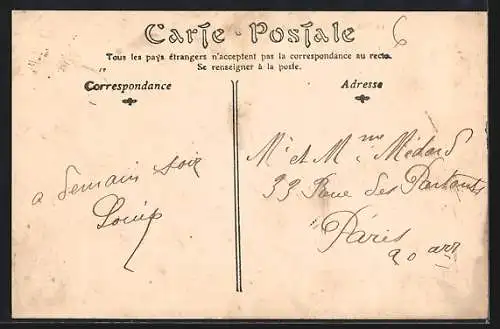 Carte Postale
6
Tous les pays étrangers n'acceptent pas la correspondance au recto.
Se renseigner à la poste.
Correspondance
Adresse
a demain soir
Louis
Mr et Mme Médard
33 Rue des Partants
Paris
20 arr